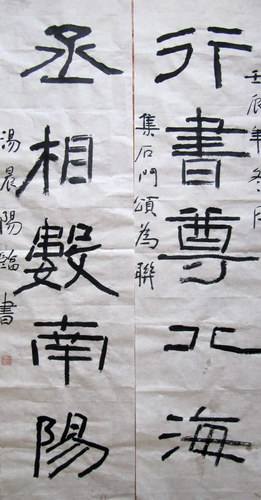 壬辰年冬月
行書尊北海
集石門頌為聯
丞相數南陽
湯晨陽臨書